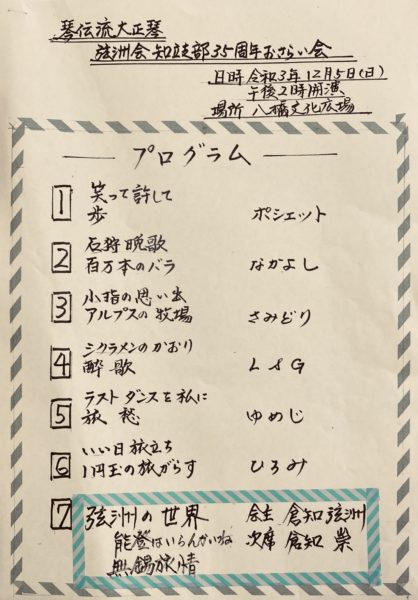 琴伝流大正琴
弦洲会知立支部35周年おさらい会
日時 令和3年12月5日(日)
午後2時開演
場所 八橋文化広場
プログラム
1 笑って許して
歩 ポシェット
2 石狩晩歌
百万本のバラ なかよし
3 小指の思い出
アルプスの牧場 さみどり
4 シクラメンのかおり
酔歌 L&G
5 ラストダンスを私に
旅愁 ゆめじ
6 いい日旅立ち
1円玉の旅がらす ひろみ
7 弦洲の世界 会主 倉知弦洲
能登はいらんかいね 次席 倉知 崇
無錫旅情